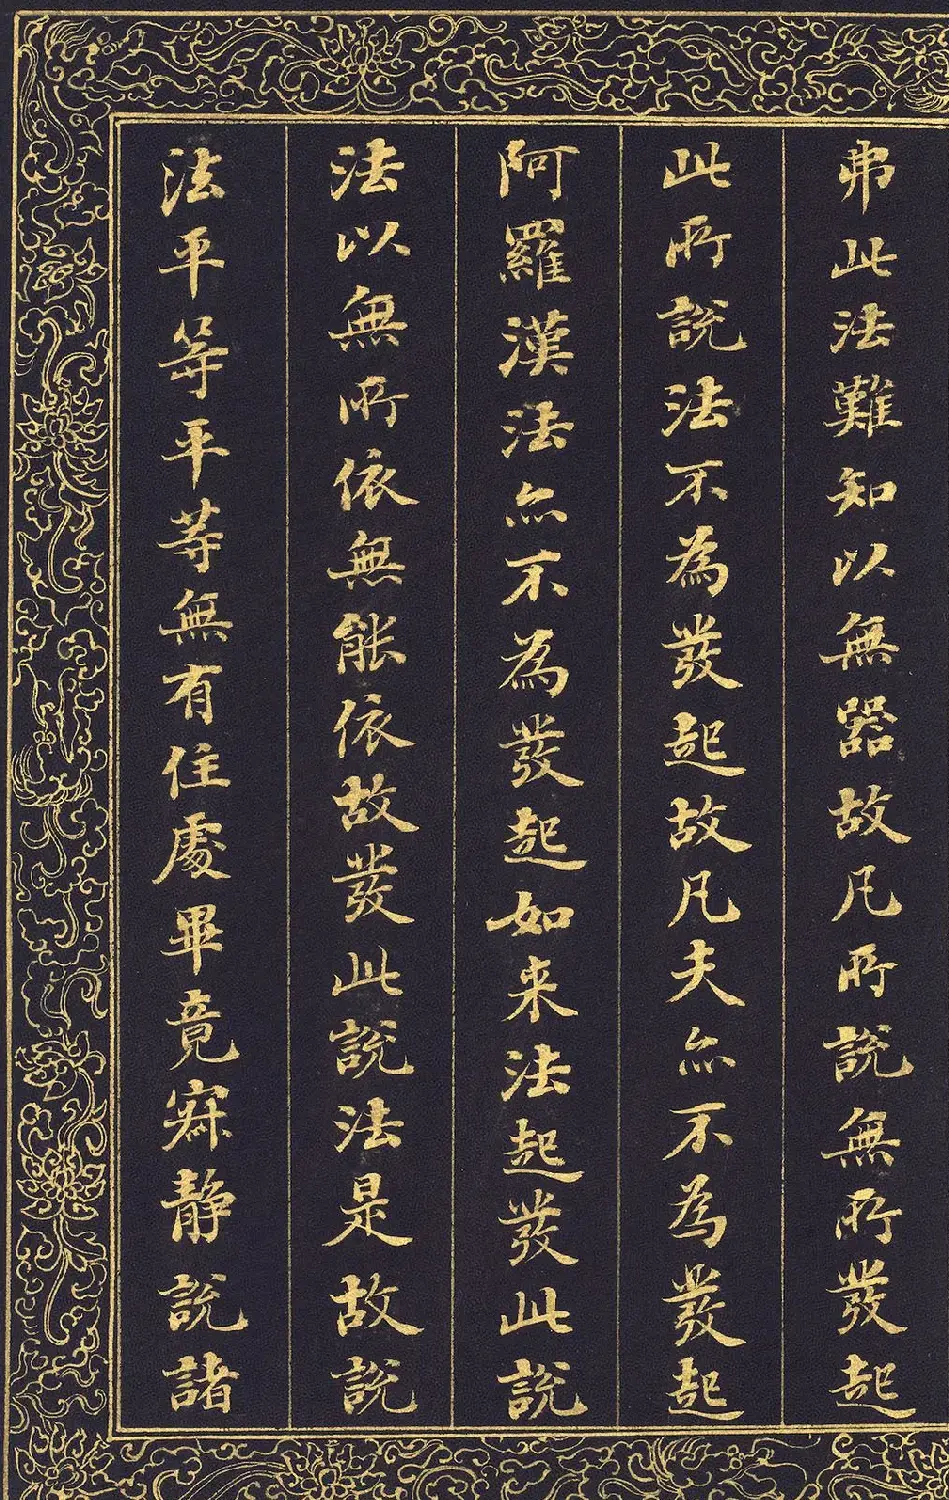 弗此法難知以無器故凡所說無所發起
此所說法不為發起故凡夫亦不為發起
阿羅漢法亦不為發起如来法起發此說
法以無所依無能依故發此說法是故說
法平等平等無有住處畢竟寂静說諸